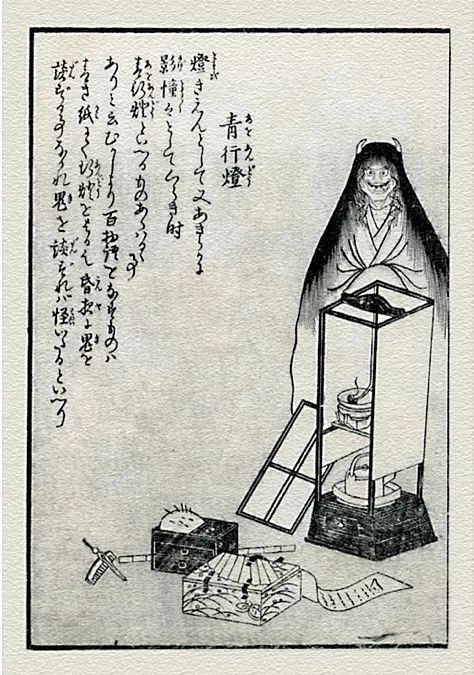 青行燈
燈きえんとして又あきらかに
影憧々としてくらき時
青行燈といへるものあらはるゝ事
ありと云むかしより百物語をなすものハ
青き紙にて行燈をはる也昏夜に鬼を
談ずる事なかれ鬼を談ずれバ怪いたるといへり